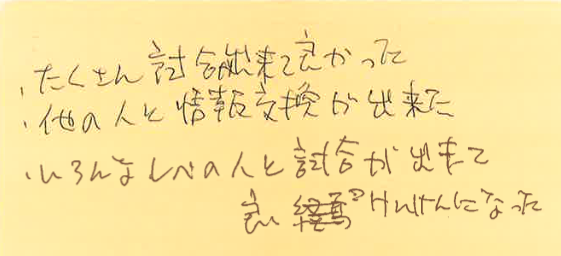 ・たくさん試合出来て良かった
・他の人と情報交換が出来た
・いろんなレベの人と試合が出来て
良いけいけんになった